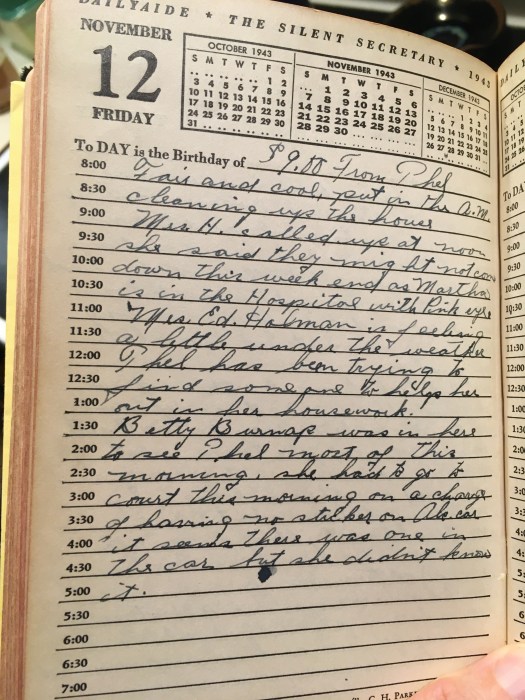 DAILYAIDE ★ THE SILENT SECRETARY ★ 1943
NOVEMBER
12
FRIDAY
OCTOBER 1943
S M T W T F S
.. .. .. .. .. 1 2
3 4 5 6 7 8 9
10 11 12 13 14 15 16
17 18 19 20 21 22 23
24 25 26 27 28 29 30
31 .. .. .. .. .. ..
NOVEMBER 1943
S M T W T F S
.. 1 2 3 4 5 6
7 8 9 10 11 12 13
14 15 16 17 18 19 20
21 22 23 24 25 26 27
28 29 30 .. .. .. ..
DECEMBER 1943
To DAY is the Birthday of $9.00 From Phel
8:00 Fair and cool, put in the A.M.
8:30 cleaning up the house
9:00 Mrs. H. called up at noon
9:30 she said they might not come
10:00 down this week end as Martha
10:30 is in the Hospital with Pink eye.
11:00 Mrs. Ed. Holman is feeling
11:30 a little under the weather
12:00 Phel has been trying to
12:30 find someone to help her
1:00 out in her housework.
1:30 Betty Burnap was in here
2:00 to see Phel most of this
2:30 morning, she had to go to
3:00 court this morning on a charge
3:30 of having no sticker on car
4:00 it seems there was one in
4:30 the car but she didn't know
5:00 it.
5:30
6:00
6:30
7:00